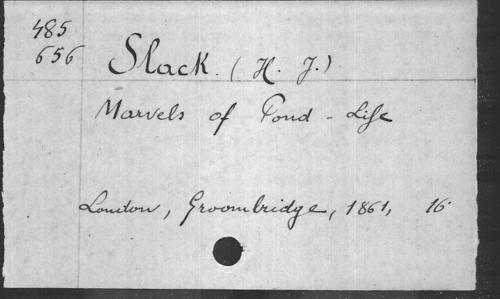 485
656
Slack. (H. J.)
Marvels of Pond - Life
London, Groombridge, 1861, 16°